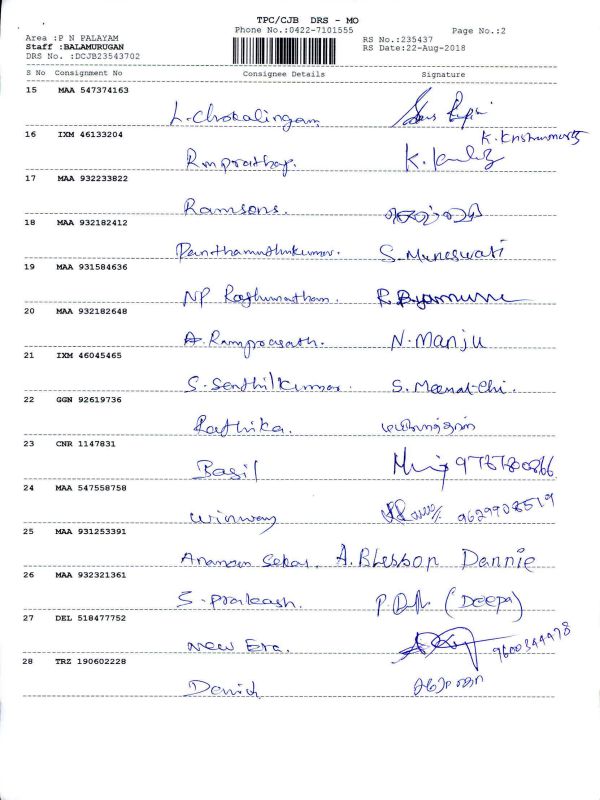 TPC/CJB DRS - MO
Phone No.:0422-7101555
Page No.:2
Area :P N PALAYAM
RS No.:235437
Staff :BALAMURUGAN
RS Date:22-Aug-2018
DRS No. :DCJB23543702
S No Consignment No Consignee Details Signature
15 MAA 547374163
L. Chokalingam
16 IXM 46133204
K. Krishnamurthy
Rmprathap. K.
17 MAA 932233822
Ramsons.
18 MAA 932182412
Panthamuthukumar. S. Muneswari
19 MAA 931584636
NP Raghunatham. R
20 MAA 932182648
A. Ramprasath. N. Manju
21 IXM 46045465
S. Senthilkumar. S. Meenatchi.
22 GGN 92619736
Rathika.
23 CNR 1147831
Basil
24 MAA 547558758
winway 9629908519
25 MAA 931253391
Sekar. A. Blesson Dannie
26 MAA 932321361
S. Prakash. P. (Deepa)
27 DEL 518477752
New Era. 9600344978
28 TRZ 190602228
David